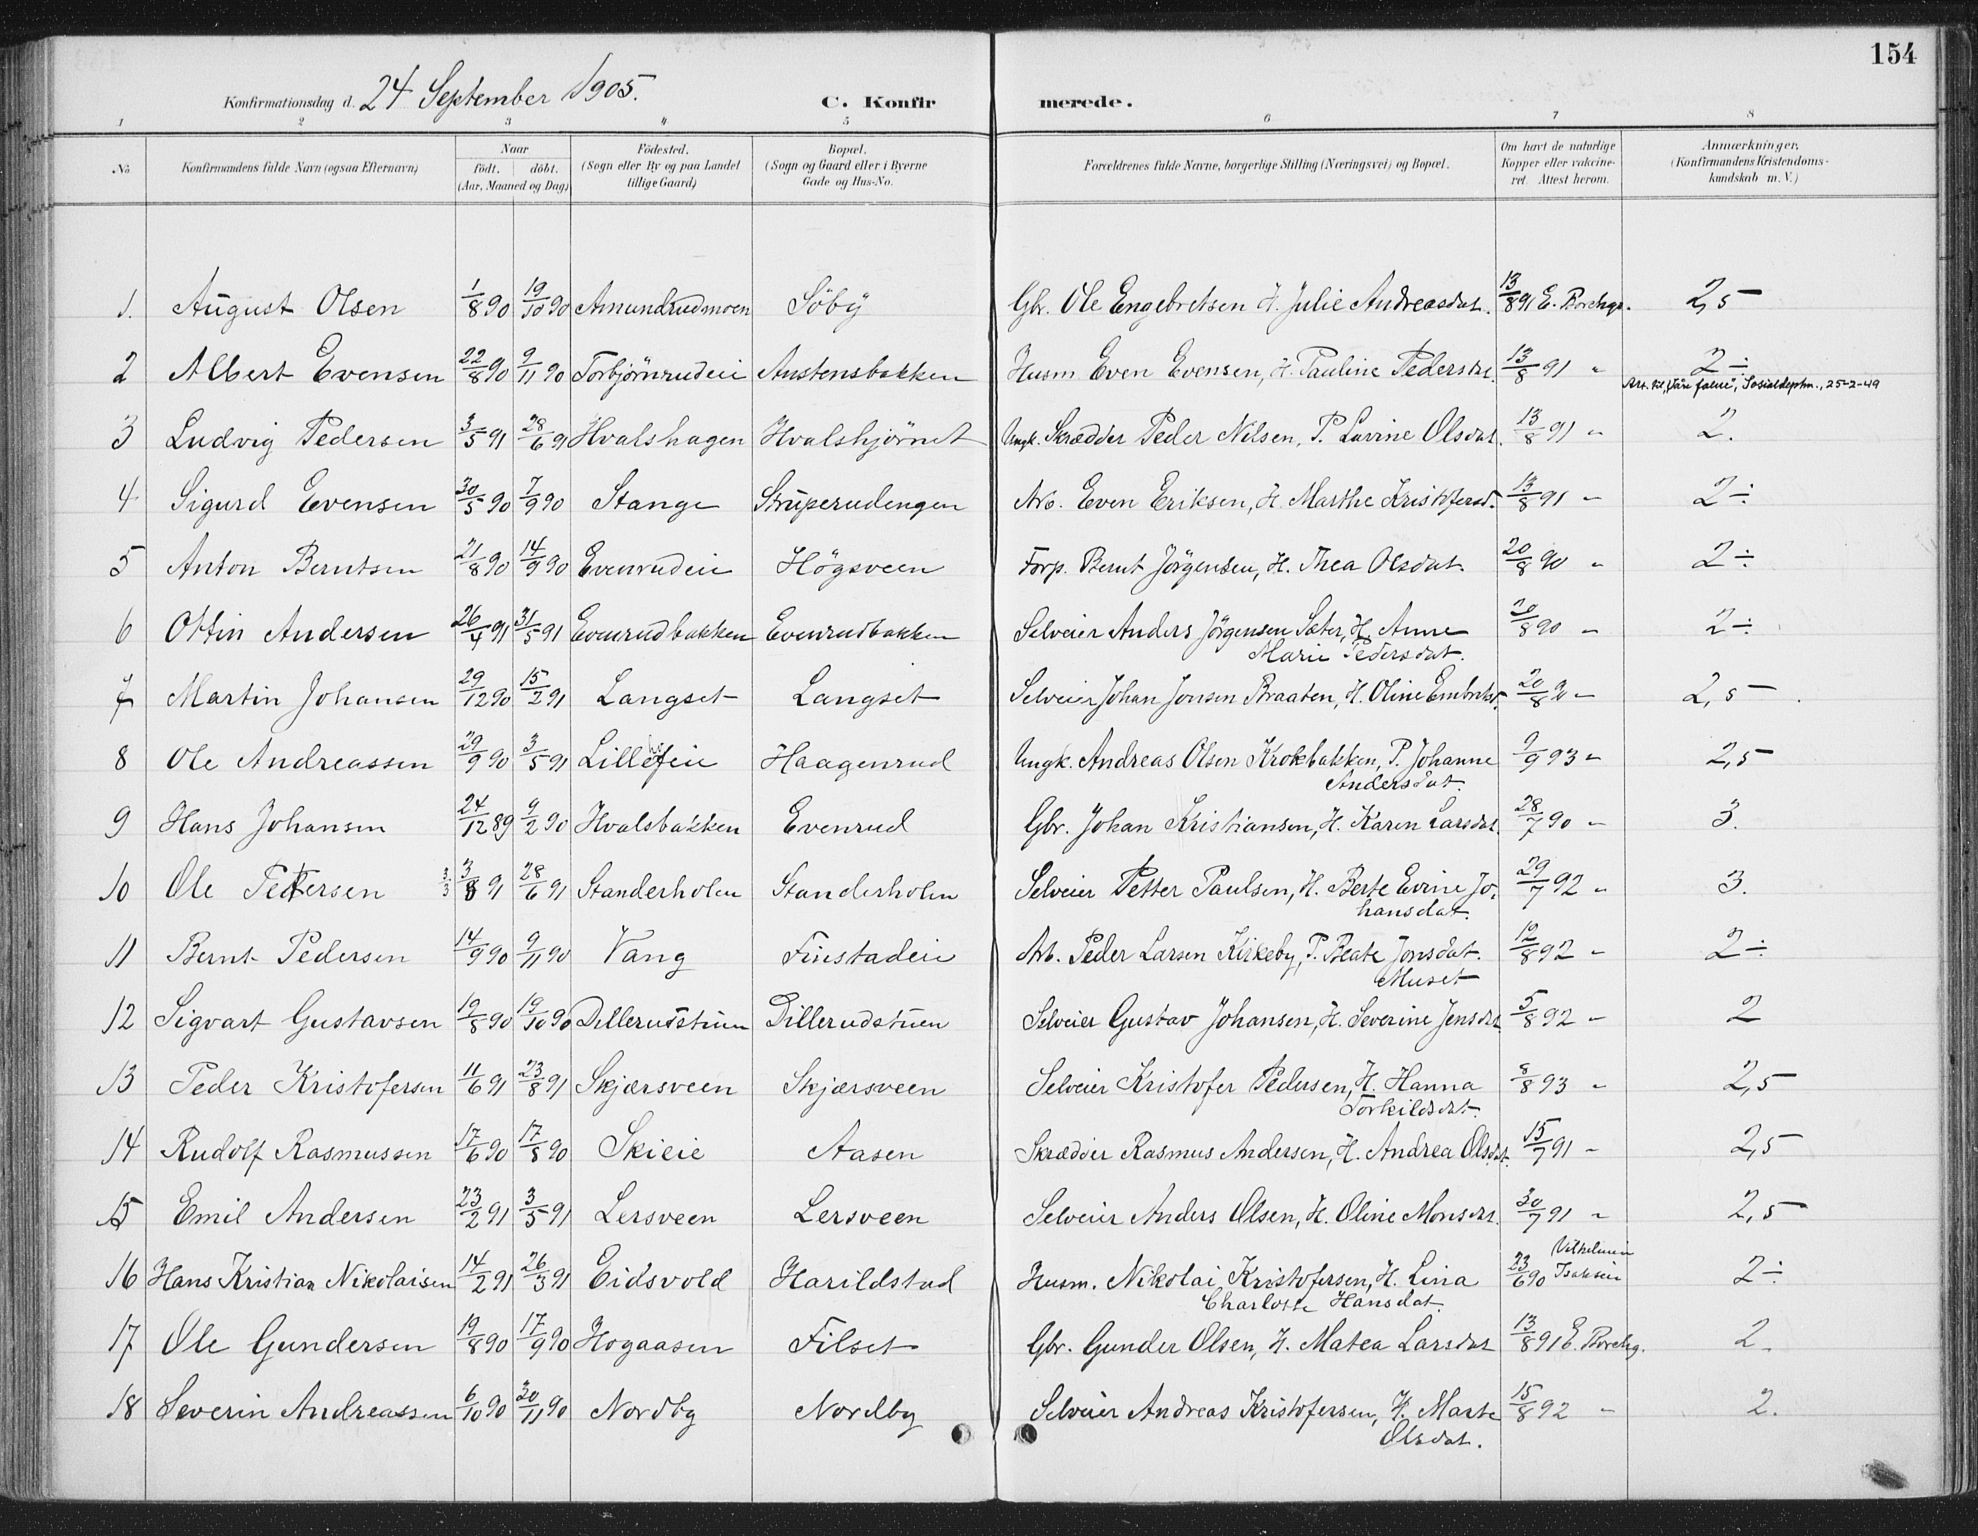 154
Konfirmationsdag d. 24 September 1905. C. Konfirmerede.
1 2 3 4 5 6 7 8
No Konfirmandens fulde Navn (ogsaa Efternavn) Naar født. døbt. (Aar, Maaned og Dag) Fødested. (Sogn eller By og paa Landet tillige Gaard) Bopæl. (Sogn og Gaard eller i Byerne Gade og Hus-No. Forældrenes fulde Navne, borgerlige Stilling (Næringsvei) og Bopæl. Om havt de naturlige Kopper eller vakcineret. Attest herom. Anmærkninger. (Konfirmandens Kristendomskundskab m. V.)
1. August Olsen 1/8 90 19/10 90 Amundrudmoen Söby Gbr. Ole Engebretsen H. Julie Andreasdat. 13/8 91 E. Borchgr. 2,5
2 Albert Evensen 22/8 90 9/11 90 Torbjörnrudeie Austensbakken Husm. Even Evensen, H. Pauline Pedersdat. 13/8 91 " 2÷
Att. til "Våre falne", Sosialdeptm., 25-2-49
3 Ludvig Pedersen 3/5 91 28/6 91 Hvalshagen Hvalshjörnet Ungk. Skrædder Peder Nilsen, P. Lavine Olsdat. 13/8 91 " 2.
4 Sigurd Evensen 30/5 90 7/9 90 Stange Struperudengen Arb. Even Eriksen, H. Marthe Kristofersd. 13/8 91 " 2÷
5 Anton Berntsen 21/8 90 14/9 90 Evenrudeie Högsveen Forp. Bernt Jörgensen, H. Thea Olsdat. 20/8 90 " 2÷
6 Ottin Andersen 26/4 91 31/5 91 Evenrudbakken Evenrudbakken Selveier Anders Jörgensen Sæter, H. Anne 20/8 90 " 2÷
Marie Pedersdat.
7 Martin Johansen 29/12 90 15/2 91 Langset Langset Selveier Johan Jonsen Braaten, H. Oline Embretsd. 20/8 90 " 2,5
8 Ole Andreassen 29/9 90 3/5 91 Haagenrud Ungk. Andreas Olsen Krokbakken, P. Johanne 9/9 93 " 2,5
Andersdat.
9 Hans Johansen 24/12 89 9/2 90 Hvalsbakken Evenrud Gbr. Johan Kristiansen, H. Karen Larsdat. 28/7 90 " 3.
10 Ole Pettersen 3/3 3/8 91 28/6 91 Standerholen Standerholen Selveier Petter Paulsen, H. Berte Evine Jo- 29/7 92 " 3.
hansdat.
11 Bernt Pedersen 14/9 90 9/11 90 Vang Finstadeie Arb. Peder Larsen Kirkeby, P. Beate Jonsdat. 12/8 92 " 2÷
Muset
12 Sigvart Gustavsen 19/8 90 19/10 90 Dillerudstuen Dillerudstuen Selveier Gustav Johansen, H. Severine Jensdat. 5/8 92 " 2
13 Peder Kristofersen 11/6 91 23/8 91 Skjærsveen Skjærsveen Selveier Kristofer Pedersen, H. Hanna 8/8 93 " 2,5
Torkildsdat.
14 Rudolf Rasmussen 17/6 90 17/8 90 Skieie Aasen Skrædder Rasmus Andersen, H. Andrea Olsdat. 15/7 91 " 2,5
15 Emil Andersen 23/2 91 3/5 91 Lersveen Lersveen Selveier Anders Olsen, H. Oline Monsdat. 30/7 91 " 2,5
16 Hans Kristian Nikolaisen 14/2 91 26/3 91 Eidsvold Harildstad Husm. Nikolai Kristofersen, H. Lina 23/6 90 Vilhelmin Isaksen 2÷
Charlotte Hansdat.
17 Ole Gundersen 19/8 90 17/9 90 Hogaasen Filset Gbr. Gunder Olsen, H. Matea Larsdat 13/8 91 E. Borchg. 2.
18 Severin Andreassen 6/10 90 30/11 90 Nordby Nordby Selveier Andreas Kristofersen, H. Marte 15/8 92 " 2.
Olsdat.